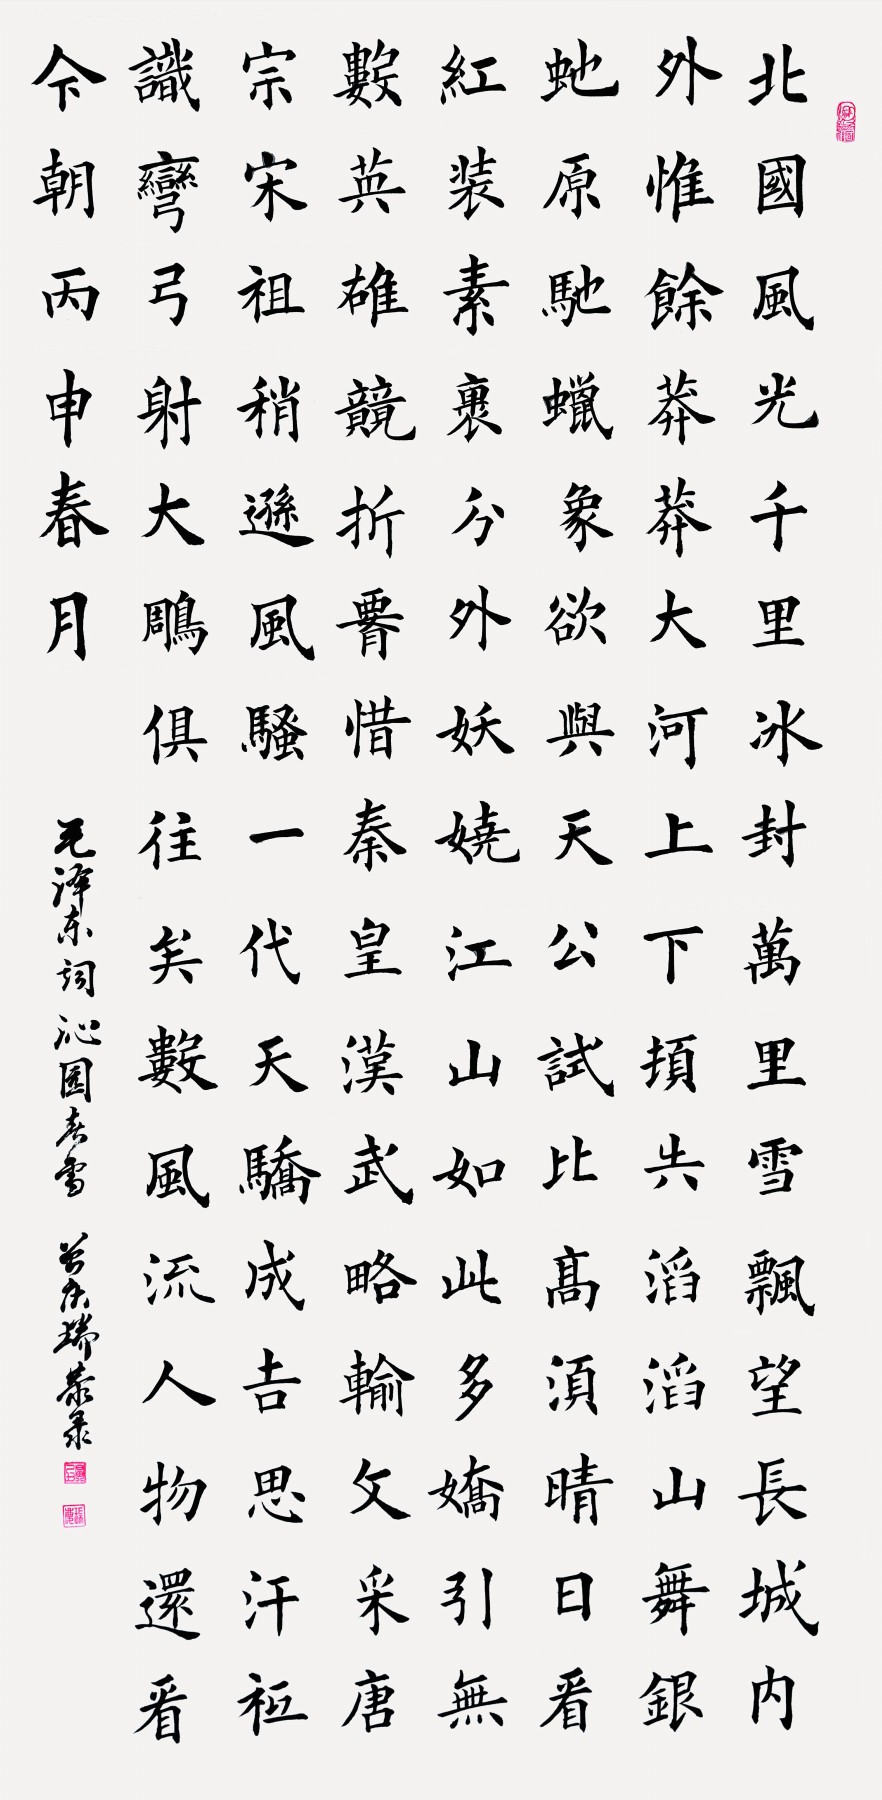 北國風光千里冰封萬里雪飄望長城内
外惟餘莽莽大河上下頓失滔滔山舞銀
虵原馳蠟象欲與天公試比髙湏晴日看
紅装素裹分外妖嬈江山如此多嬌引無
數英雄競折腰惜秦皇漢武略輸文采唐
宗宋祖稍遜風騷一代天驕成吉思汗袛
識彎弓射大鵰俱往矣數風流人物還看
今朝丙申春月
毛泽东词沁园春雪 曾庆瑞恭录